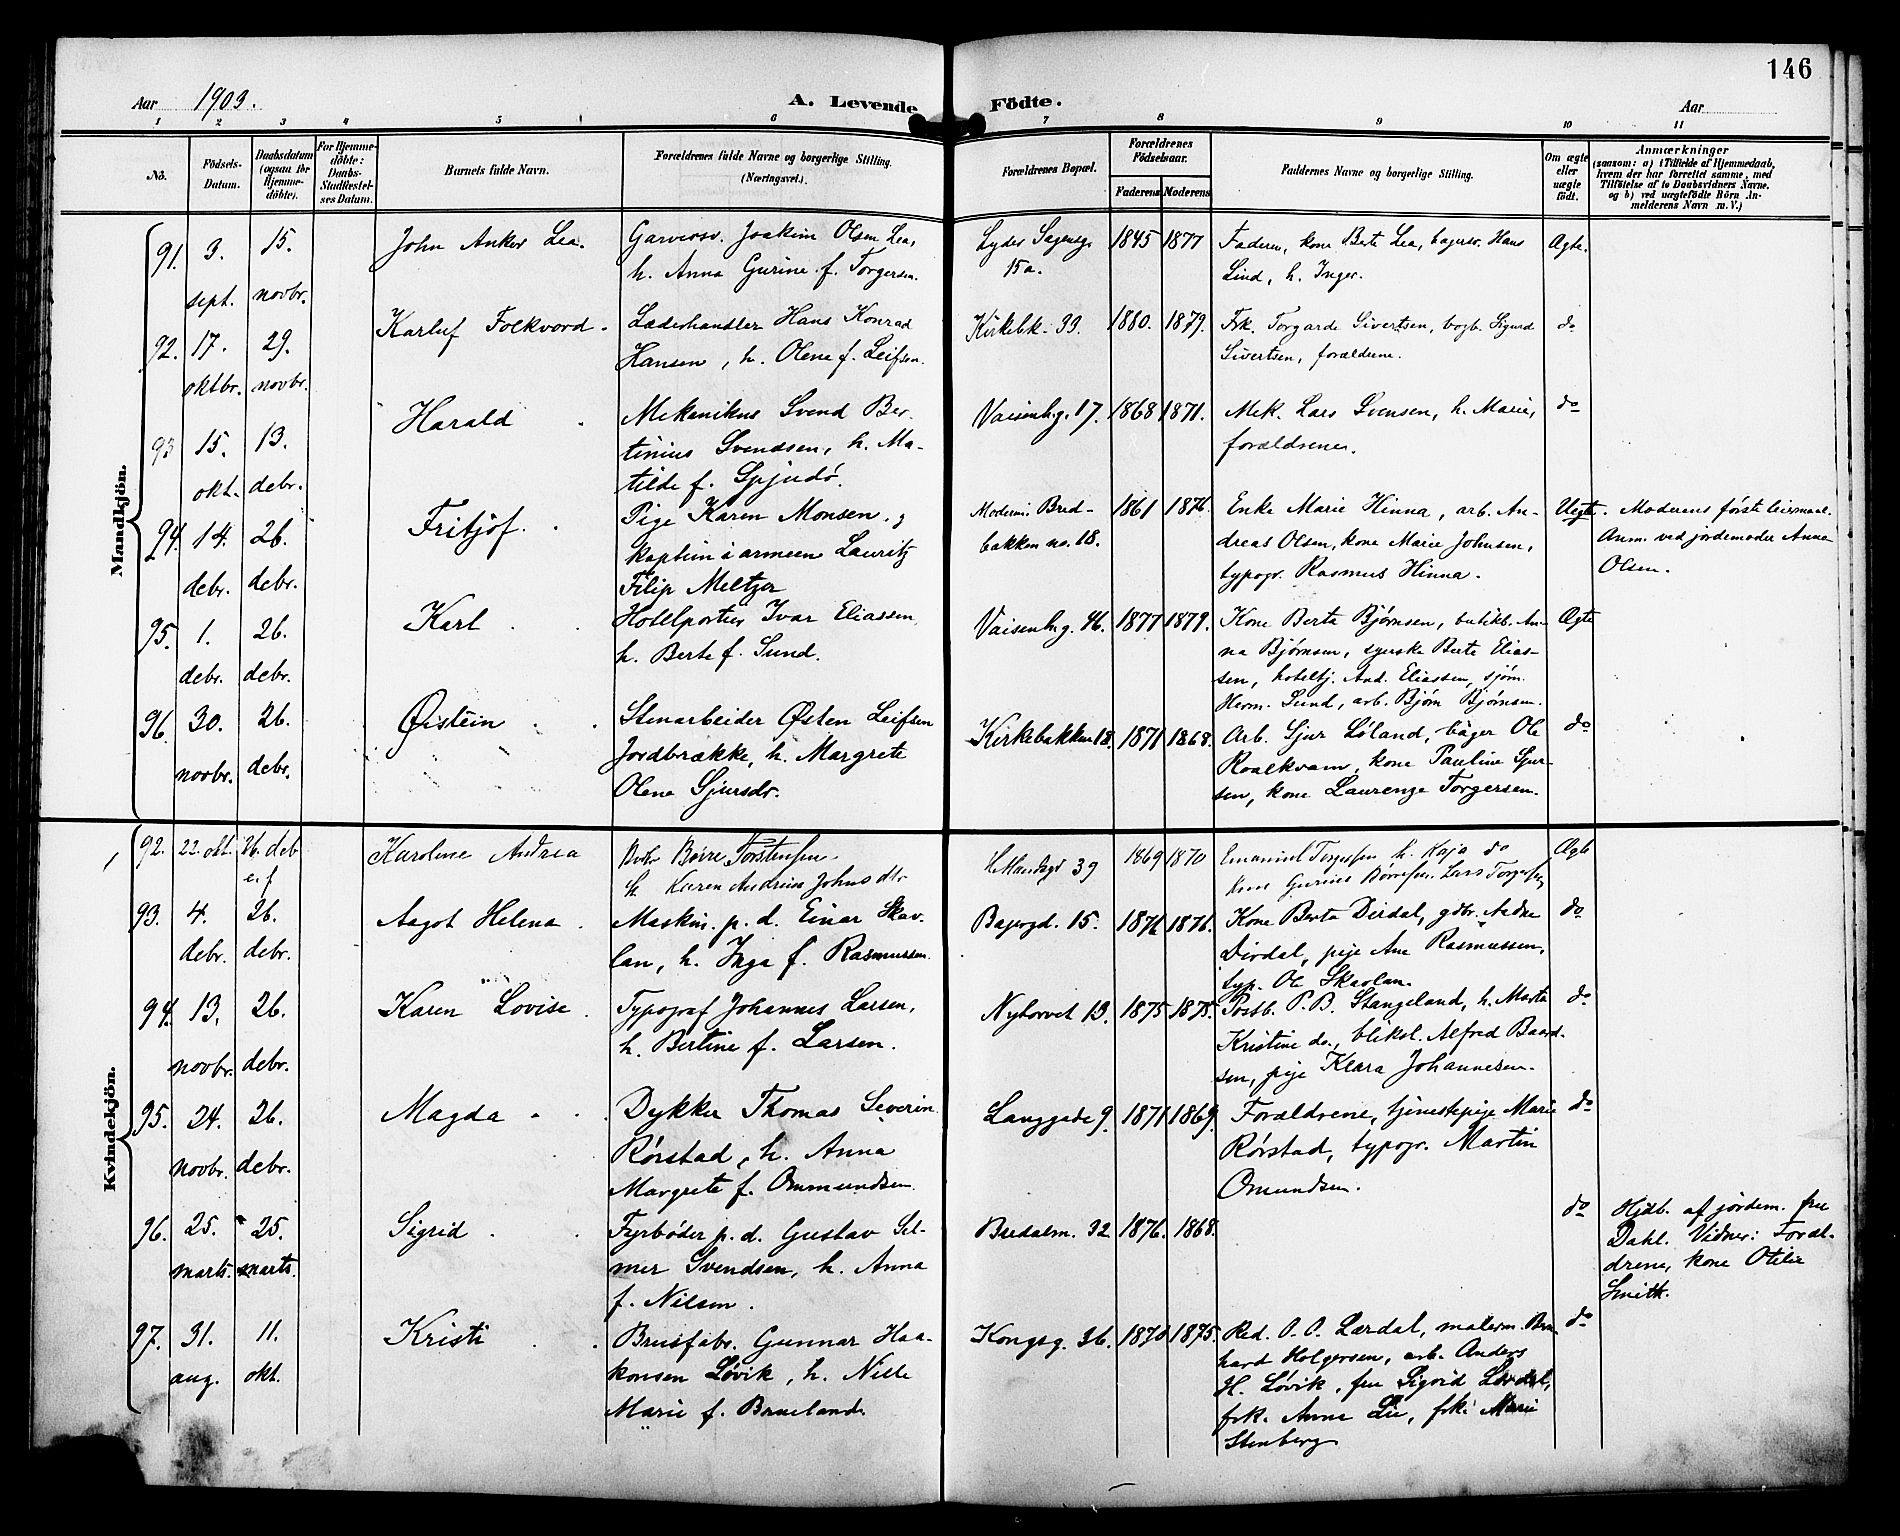 146
Aar 1903.
A. Levende Födte.
Aar
1 2 3 4 5 6 7 8 9 10 11
No.
Födsels-
Datum.
Daabsdatum
(ogsaa for
Hjemme-
döbte).
For Hjemme-
döbte:
Daabs-
Stadfæstel-
ses Datum.
Barnets fulde Navn.
Forældrenes fulde Navne og borgerlige Stilling.
(Næringsvei.)
Forældrenes Bopæl.
Forældrenes
Födselsaar.
Faderens Moderens
Faddernes Navne og borgerlige Stilling.
Om ægte
eller
uægte
födt.
Anmærkninger
(saasom: a) i Tilfælde af Hjemmedaab,
hvem der har forrettet samme, med
Tilföielse af to Daabsvidners Navne,
og b) ved uægtefödte Börn An-
melderens Navn m. V.)
Mandkjön.
91. 3. sept. 15. novbr.
John Anker Lea.
Garversv. Joakim Olsen Lea,
h. Anna Gurine f. Torgersen.
Lyder Sagensg.
15a.
1845 1877
Faderen, kone Berte Lea, bagersv. Hans
Lind, h. Inger.
Ægte.
92. 17. oktbr. 29. novbr.
Karluf Folkvord.
Læderhandler Hans Konrad
Hansen, h. Olene f. Leifsen.
Kirkebk. 33.
1880. 1879.
Frk. Torgarde Sivertsen, bogb. Sigurd
Sivertsen, forældrene.
do
93 15. okt. 13. debr.
Harald
Mekanikus Svend Ber-
tinius Svendsen, h. Ma-
tilde f. Gjudö.
Vaisenhg. 17.
1868 1871.
Mek. Lars Svensen, h. Marie,
forældrene.
do
94. 14. debr. 26. debr.
Fritjof.
Pige Karen Monsen. og
kaptein i armeen Lauritz
Filip Meltzer
Moderen: Bred-
bakken no. 18.
1861 1876.
Enke Marie Hinna, arb. An-
dreas Olsen, kone Marie Johnsen,
typogr. Rasmus Hinna.
Uegte.
Moderens første leiermaal.
Anm. ved jordemoder Anna
Olsen.
95. 1. debr. 26. debr.
Karl
Hotelportier Ivar Eliassen,
h. Berte f. Sund.
Vaisenhg. 46.
1877 1879.
Kone Berta Bjørnsen, butikb. An-
na Bjørnsen, syerske Berte Elias-
sen, hoteltj. And. Eliassen, sjøm.
Herm. Sund, arb. Bjørn Bjørnsen.
Ægte
96. 30. novbr. 26. debr.
Øistein
Stenarbeider Østen Leifsen
Jordbrække, h. Margrete
Olene Sjursdr.
Kirkebakken 18.
1871 1868.
Arb. Sjur Løland, bager Ole
Roalkvam, kone Pauline Sjur-
sen, kone Laurenze Torgersen.
do
Kvindekjön.
92. 22. okt. 26. deb
e. f
Karoline Andrea
Børre Torstensen
H. Karen Andrine Johnsdtr
39
1869 1870
Emanuel Torgersen h. Kaja do
Kone Gurine Børresen. Lars Torgersen
Ægte
93. 4. debr. 26. debr.
Aagot Helena.
Maskin. p. d. Einar Skav-
lan, h. Inga f. Rasmussen.
Bagergd. 15.
1876 1876.
Kone Berta Dirdal, gdbr. Aadne
Dirdal, pige Ane Rasmussen,
typ. Ole Skavlan.
do
94. 13. novbr. 26. debr.
Karen Lovise.
Typograf Johannes Larsen,
h. Bertine f. Larsen.
Nytorvet 13.
1875 1875.
Postb. P. B. Stangeland, h. Marta
Kristine do., bliksl. Alfred Baard-
sen, pige Klara Johannesen.
do
95. 24. novbr. 26. debr.
Magda
Dykker Thomas Severin
Rørstad, h. Anna
Margrete f. Ommundsen
Langgade 9.
1871 1869.
Forældrene, tjenestepige Marie
Rørstad, typogr. Martin
Omundsen.
do
96. 25. marts. 25. marts.
Sigrid
Fyrbøder p. d. Gustav Sel-
mer Svendsen, h. Anna
f. Nilsen.
Bredalm. 32
1876. 1868.
do
Hjdb. af jordem. fru
Dahl. Vidner: Foræl-
drene, kone Otilie
Smith.
97. 31. aug. 11. okt.
Kristi
Brusfabr. Gunnar Haa-
konsen Løvik, h. Nille
Marie f. Brueland
Kongsg. 36.
1870 1875.
Red. O. O. Lærdal, malerm. Bern-
hard Holgersen, arb. Anders
H. Løvik, fru Sigrid Lærdal,
frk. Anna Lie, frk. Marie
Stenberg
do